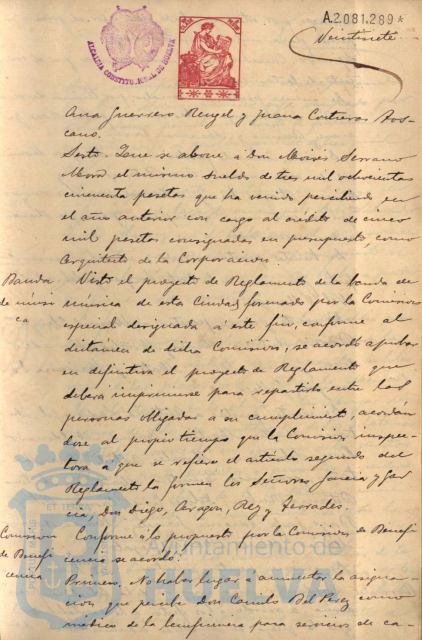 A.2.081.289*
Veintisiete
ALCALDIA CONSTITUCIONAL DE HUELVA
Ana Guerrero Rengel y Juana Contreras Tos-
cano.
Sesto. Que se abone á Don Moisés Serrano
Mora el mismo sueldo de tres mil ochocientas
cincuenta pesetas que ha venido percibiendo en
el año anterior con cargo al crédito de cinco
mil pesetas consignadas en presupuesto, como
Arquitecto de la Corporacion.
Banda
de músi
ca
Visto el proyecto de Reglamento de la banda de
música de esta Ciudad, formado por la Comision
especial designada á este fin, conforme al
dictámen de dicha Comision, se acordó aprobar
en definitiva el proyecto de Reglamento que
deberá imprimirse para repartirlo entre las
personas obligadas á su cumplimiento, acordán
dose al propio tiempo que la Comision inspec-
tora á que se refiere el artículo segundo del
Reglamento la formen los Señores García y Gar
cia, Don Diego, Aragon, Rey y Terrades.
Comision
de Benefi
cencia
Conforme á lo propuesto por la Comision de Benefi
cencia se acordó:
Primero. No haber lugar á aumentar la asigna-
cion que percibe Don Camilo Bel Perez como
médico de la beneficencia para servicios de ca-
Ayuntamiento de
HUELVA